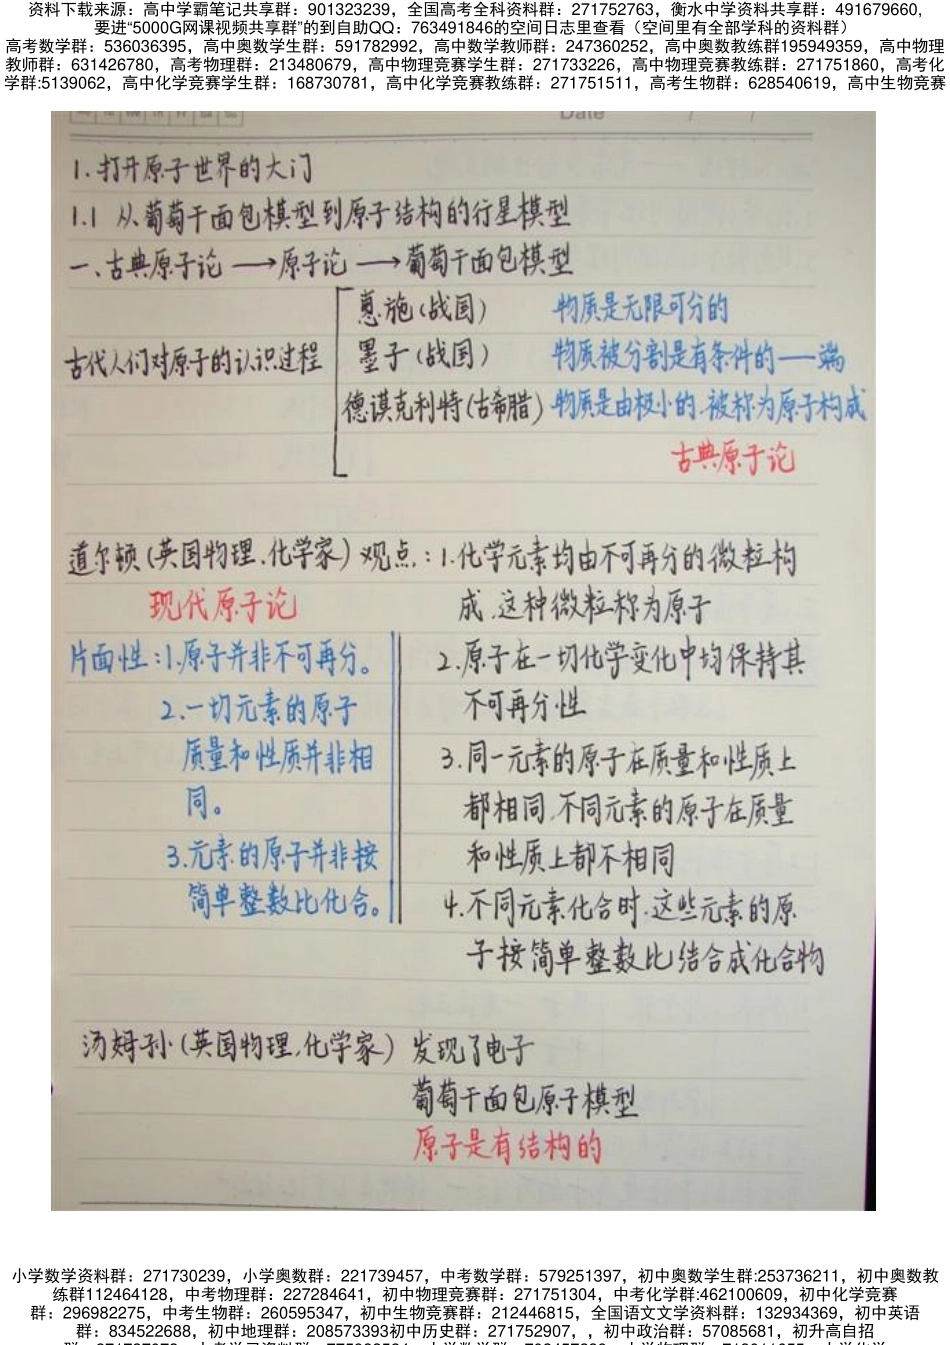 资料下载来源：高中学霸笔记共享群：901323239，全国高考全科资料群：271752763，衡水中学资料共享群：491679660,
要进“5000G网课视频共享群”的到自助QQ：763491846的空间日志里查看（空间里有全部学科的资料群）
高考数学群：536036395，高中奥数学生群：591782992，高中数学教师群：247360252，高中奥数教练群195949359，高中物理
教师群：631426780，高考物理群：213480679，高中物理竞赛学生群：271733226，高中物理竞赛教练群：271751860，高考化
学群:5139062，高中化学竞赛学生群：168730781，高中化学竞赛教练群：271751511，高考生物群：628540619，高中生物竞赛
Date / /
1.打开原子世界的大门
1.1 从葡萄干面包模型到原子结构的行星模型
一、古典原子论 ⟶ 原子论 ⟶ 葡萄干面包模型
惠施(战国) 物质是无限可分的
古代人们对原子的认识过程 墨子(战国) 物质被分割是有条件的——端
德谟克利特(古希腊) 物质是由极小的.被称为原子构成
古典原子论
道尔顿(英国物理.化学家) 观点:1.化学元素均由不可再分的微粒构
现代原子论 成.这种微粒称为原子
片面性:1.原子并非不可再分。 2.原子在一切化学变化中均保持其
2.一切元素的原子 不可再分性
质量和性质并非相 3.同一元素的原子在质量和性质上
同。 都相同.不同元素的原子在质量
3.元素的原子并非按 和性质上都不相同
简单整数比化合。 4.不同元素化合时.这些元素的原
子按简单整数比结合成化合物
汤姆孙(英国物理.化学家) 发现了电子
葡萄干面包原子模型
原子是有结构的
小学数学资料群：271730239，小学奥数群：221739457，中考数学群：579251397，初中奥数学生群:253736211，初中奥数教
练群112464128，中考物理群：227284641，初中物理竞赛群：271751304，中考化学群:462100609，初中化学竞赛
群：296982275，中考生物群：260595347，初中生物竞赛群：212446815，全国语文文学资料群：132934369，初中英语
群：834522688，初中地理群：208573393初中历史群：271752907，，初中政治群：57085681，初升高自招